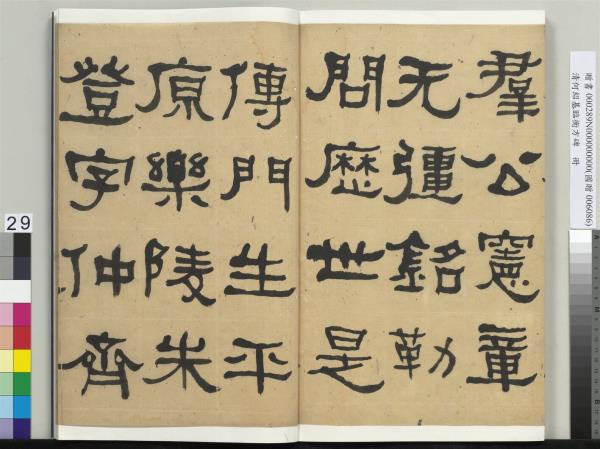 羣公憲章
无彊銘勒
問歷世是
傳門生平
原樂陵朱
登字仲齊
贈書 000289N000000000(國贈 006086)
清何紹基臨衡方碑 冊
29